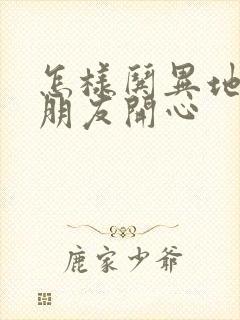 怎樣鬨異地
朋友開心
鹿家少爺